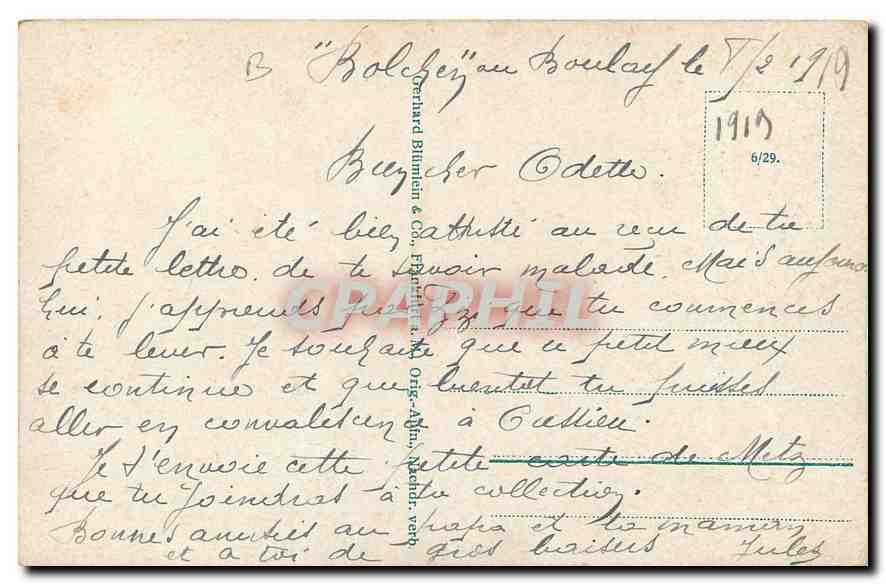 B "Bolchen" ou Boulay le 5/2 1919
1919
6/29.
Bien cher Odette.
J'ai été bien attristé au reçu de ta
petite lettre, de te savoir malade. Mais aujourd
hui, j'apprends par que tu commences
à te lever. Je souhaite que ce petit mieux
se continue et que bientôt tu puisses
aller en convalescence à
Je t'envoie cette petite carte de Metz
que tu joindras à ta collection.
Bonnes amitiés au papa et ta maman
et à toi de gros baisers Jules
Gerhard Blümlein & Co., Frankfurt a. M., Orig.-Aufn., Nachdr. verb.
CPAPHIL